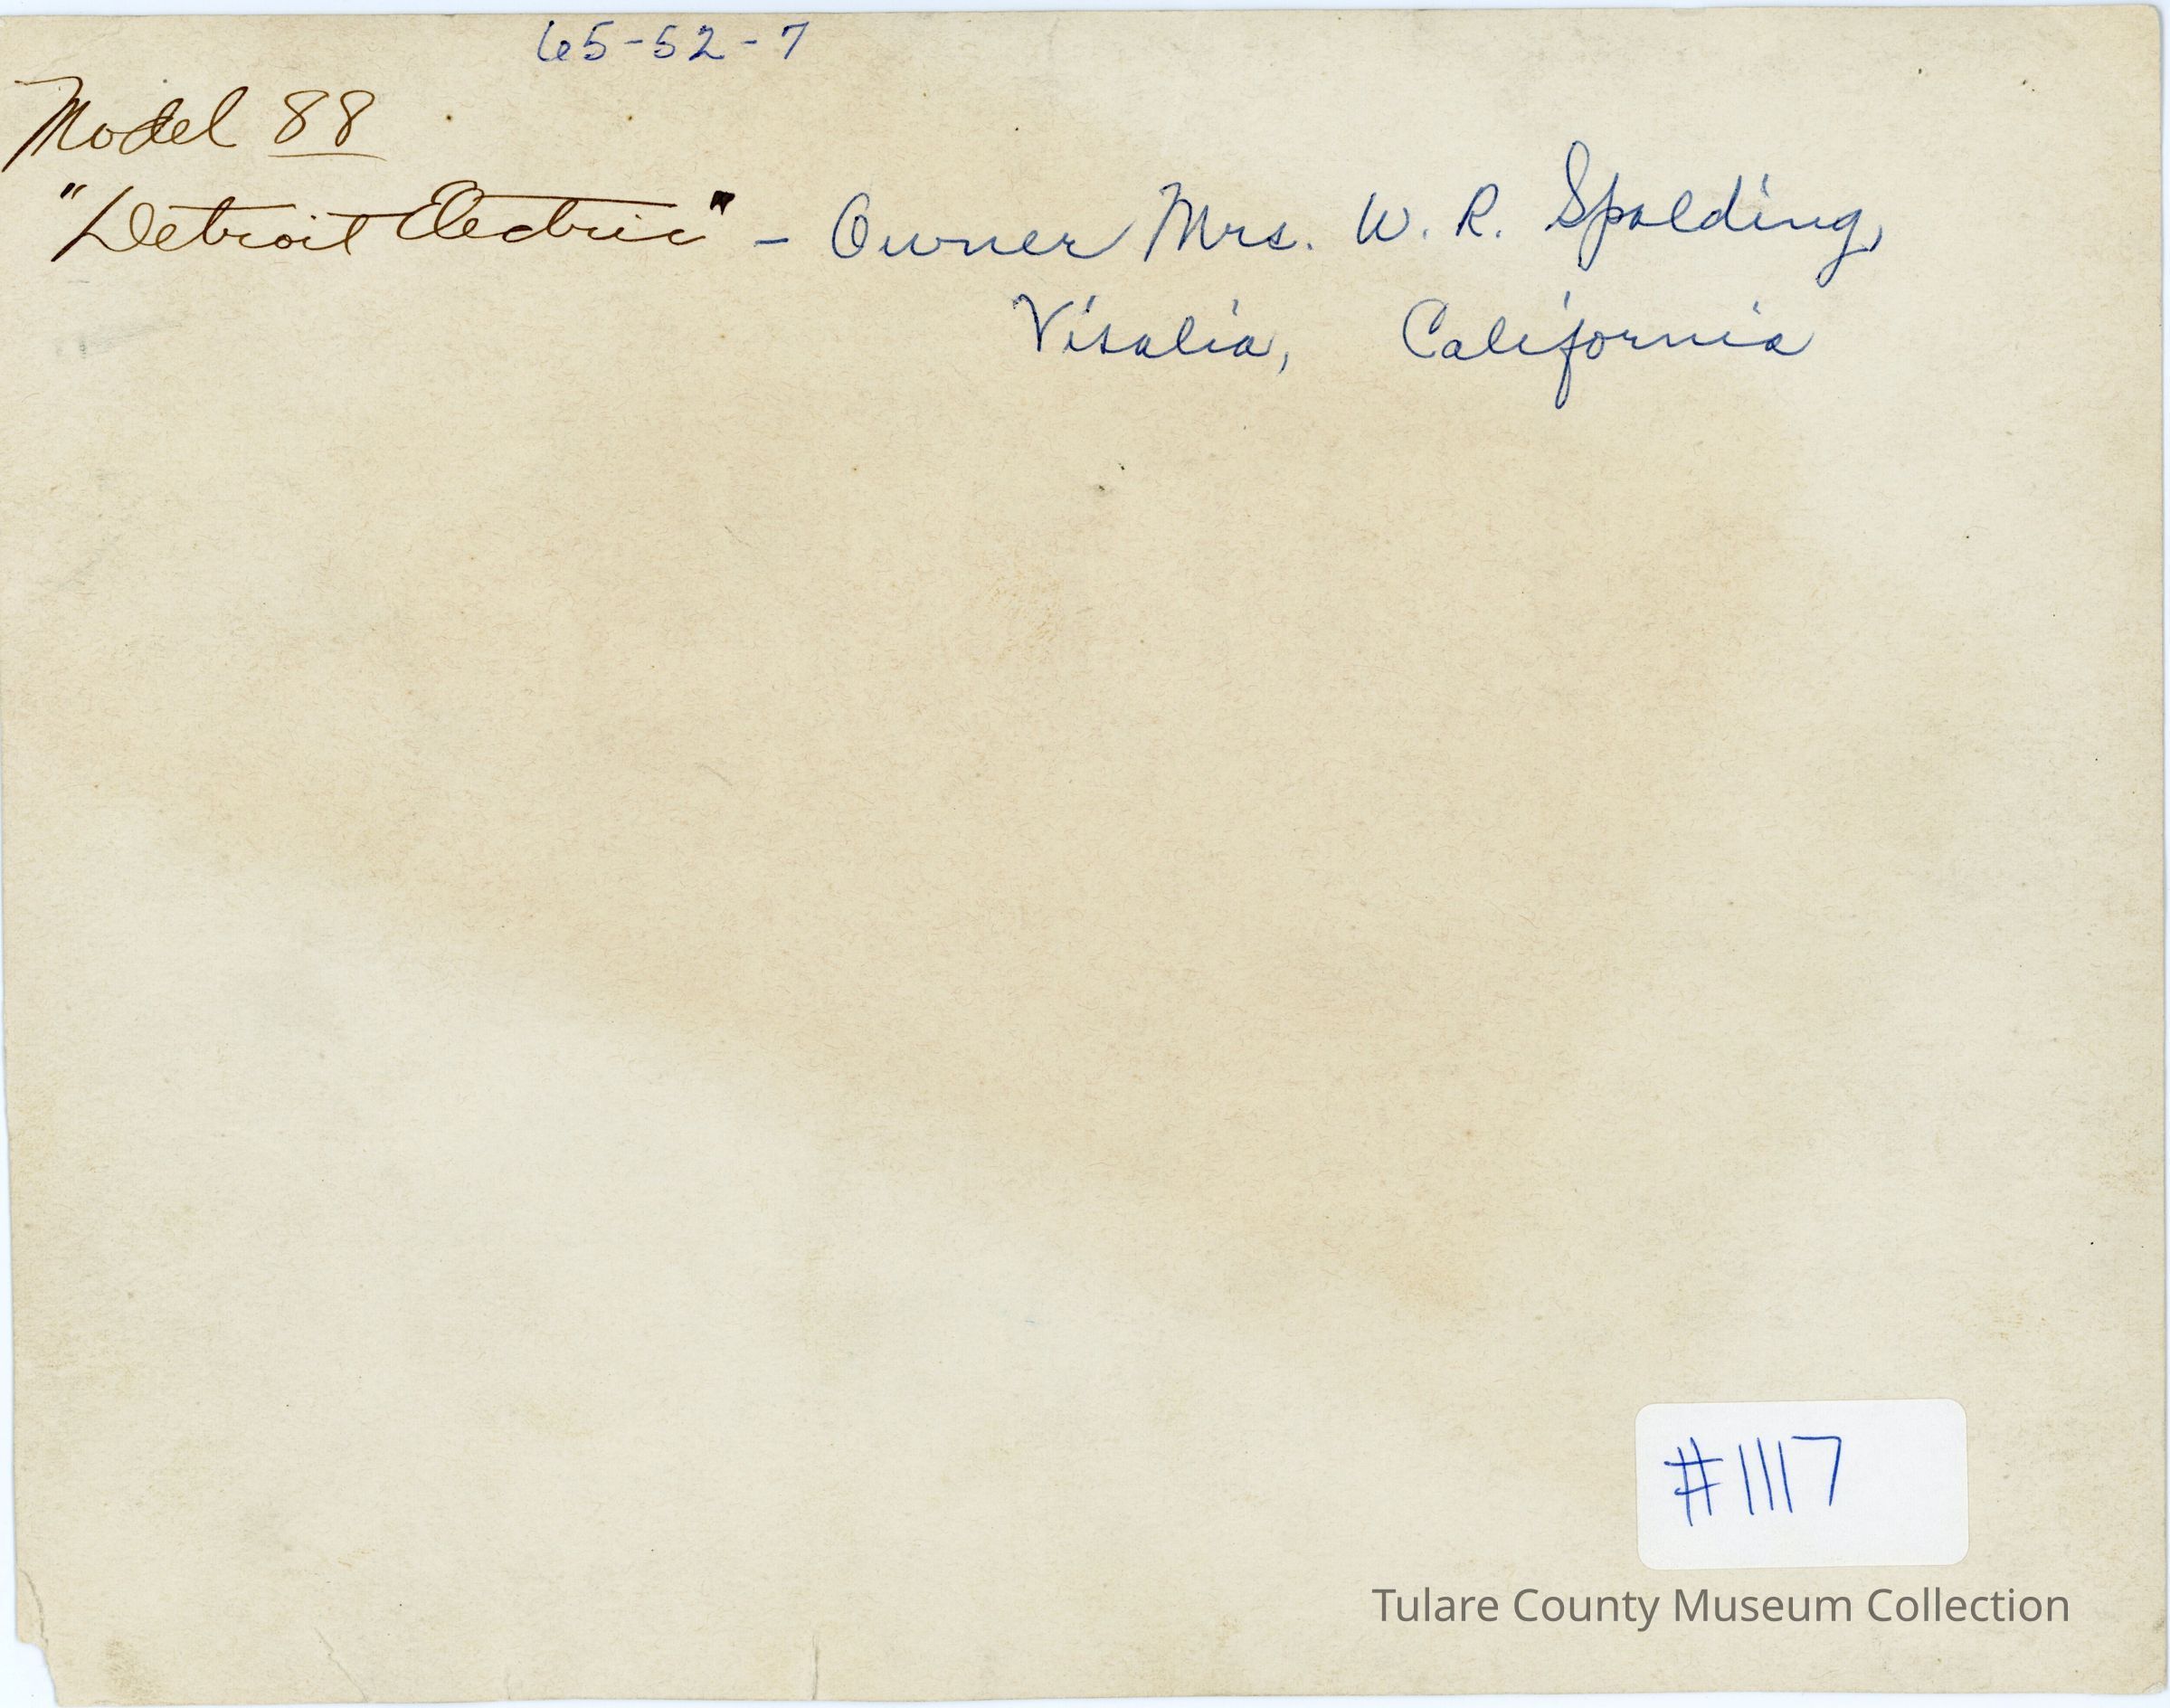 65-52-7
Model 88
"Detroit Electric" - Owner Mrs. W. R. Spalding,
Visalia, California
#1117
Tulare County Museum Collection